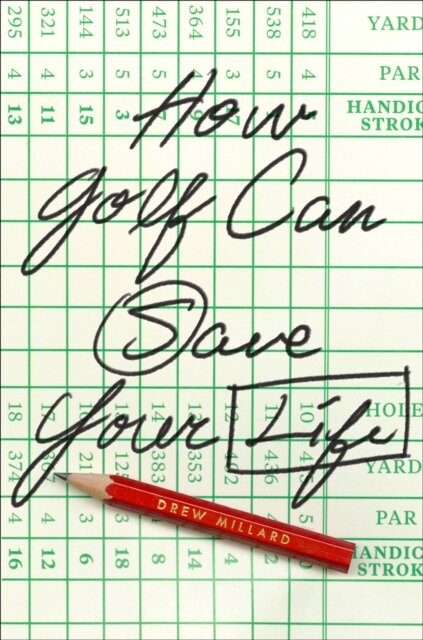 295 321 144 513 473 364 155 538 418 YARD
4 4 3 5 5 4 3 5 4 PAR
13 11 15 3 HANDIC
STROK
How
Golf Can
Save
Your Life
18 10 HOLE
374 383 353 436 YARD
4 4 PAR
16 12 6 18 8 14 4 HANDIC
STROK
DREW MILLARD